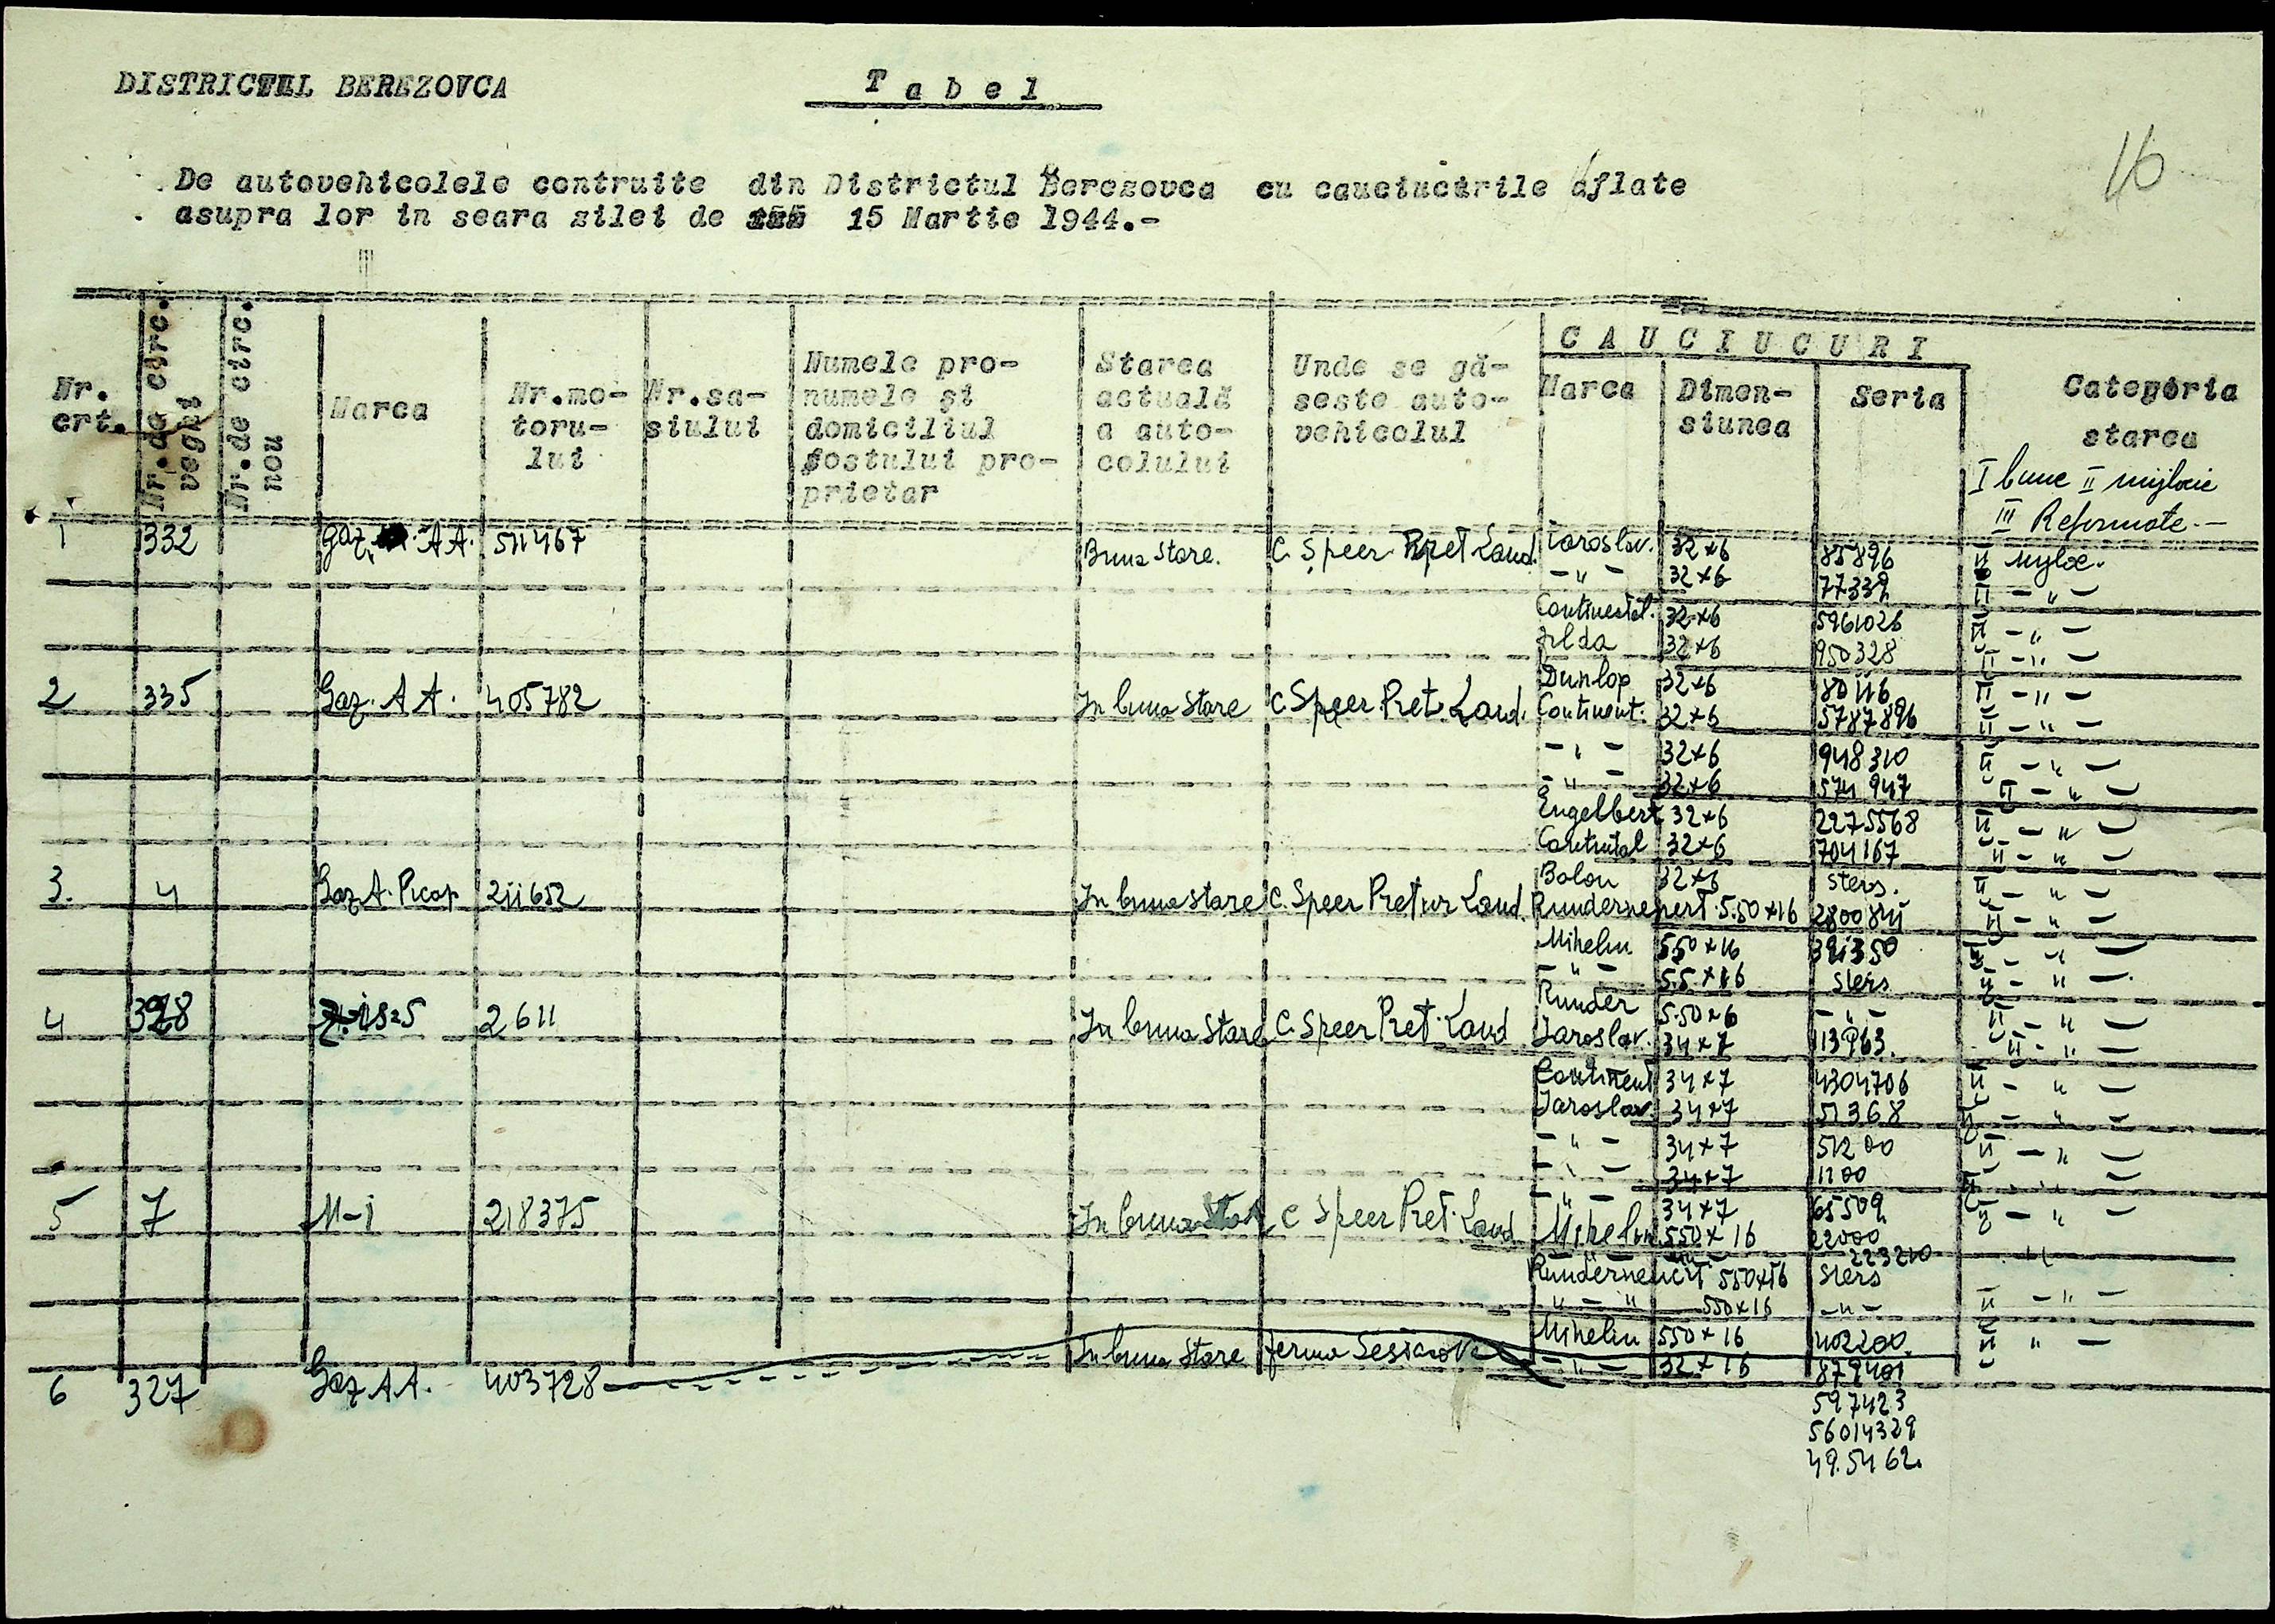 DISTRICTUL BEREZOVCA
T a b e l
16
De autovehicolele contruite din Districtul Berezovca cu cauciucurile aflate
asupra lor in seara zilei de 15 Martie 1944.-
Nr. crt.
Nr.de circ. veghi
Nr.de circ. nou
Marca
Nr.mo-toru-lui
Nr.sa-siului
Numele pro-numele și domiciliul fostului pro-prietar
Starea actuală a auto-colului
Unde se gă-seste auto-vehicolul
C A U C I U C U R I
Marca
Dimen-siunea
Seria
Categoria starea
I bune II mijlocie
III Reformate.-
1 332 Gaz. AA. 511467 Buna Stare. C. Speer Pret Land. Iaroslav. 32×6 85896 II
-"- 32×6 77339 II -"-
Continental. 32×6 5961026 II -"-
32×6 950328 II -"-
Dunlop 32×6 80116 II -"-
2 335 Gaz. AA. 405782 In buna Stare C. Speer Pret. Land. Continent. 32×6 5787896 II -"-
-"- 32×6 948310 II -"-
-"- 32×6 574947 II -"-
Engelbert 32×6 2275568 II -"-
Continental 32×6 704167 II -"-
Balon 32×6 sters. II -"-
3. 4 Gaz A. Picap 211652 In buna stare C. Speer Pretur Land. 5.50×16 II -"-
Mihelin 550×16 391350 II -"-
-"- 5.5.×16 sters II -"-
Runder 5.50×6 -"- II -"-
4 328 Z.is-5 2611 In buna Stare C. Speer Pret. Land Iaroslav. 34×7 113963. II -"-
Continent 34×7 4304706 II -"-
Iaroslav. 34×7 51368 II -"-
-"- 34×7 51200 II -"-
-"- 34×7 1100 II -"-
-"- 34×7 65509 II -"-
5 7 M-i 218375 In buna C Speer Pret. Land Mihelin 550×16 22000
223210 "
550×16 sters
" - " 550×16 -"- II -"-
Mihelin 550×16 402200. II " -
6 327 Gaz AA. 403728 In buna Stare ferma -"- 32×16 879401
597423
56014329
49.5462.